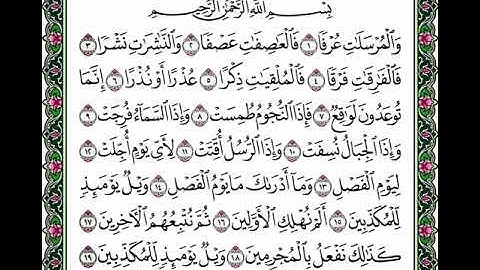 بِسْمِ ٱللَّهِ ٱلرَّحْمَٰنِ ٱلرَّحِيمِ
وَٱلْمُرْسَلَٰتِ عُرْفًا ١ فَٱلْعَٰصِفَٰتِ عَصْفًا ٢ وَٱلنَّٰشِرَٰتِ نَشْرًا ٣
فَٱلْفَٰرِقَٰتِ فَرْقًا ٤ فَٱلْمُلْقِيَٰتِ ذِكْرًا ٥ عُذْرًا أَوْ نُذْرًا ٦ إِنَّمَا
تُوعَدُونَ لَوَٰقِعٌ ٧ فَإِذَا ٱلنُّجُومُ طُمِسَتْ ٨ وَإِذَا ٱلسَّمَآءُ فُرِجَتْ ٩
وَإِذَا ٱلْجِبَالُ نُسِفَتْ ١٠ وَإِذَا ٱلرُّسُلُ أُقِّتَتْ ١١ لِأَىِّ يَوْمٍ أُجِّلَتْ ١٢
لِيَوْمِ ٱلْفَصْلِ ١٣ وَمَآ أَدْرَىٰكَ مَا يَوْمُ ٱلْفَصْلِ ١٤ وَيْلٌ يَوْمَئِذٍ
لِّلْمُكَذِّبِينَ ١٥ أَلَمْ نُهْلِكِ ٱلْأَوَّلِينَ ١٦ ثُمَّ نُتْبِعُهُمُ ٱلْءَاخِرِينَ ١٧
كَذَٰلِكَ نَفْعَلُ بِٱلْمُجْرِمِينَ ١٨ وَيْلٌ يَوْمَئِذٍ لِّلْمُكَذِّبِينَ ١٩